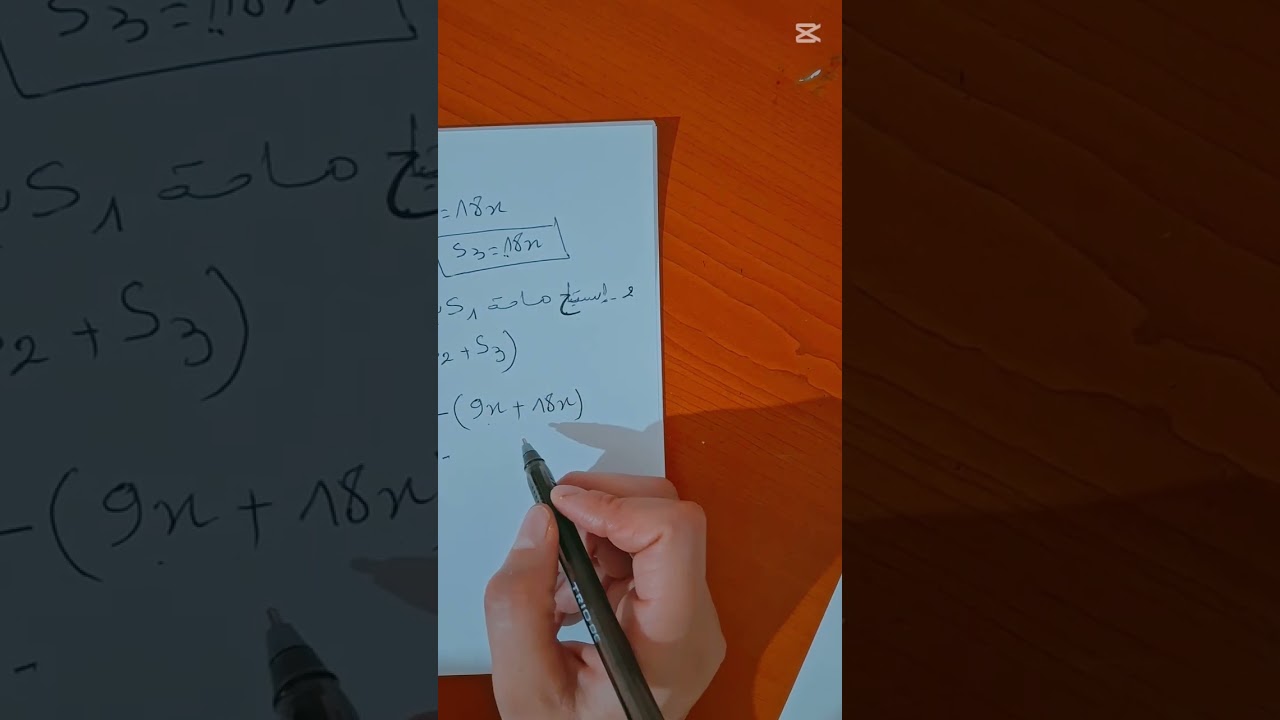 =18x
S3=18x
2- إستنتاج مساحة S1
2+S3)
-(9x+18x)
-
TRIO